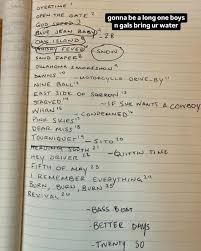 gonna be a long one boys
n gals bring ur water
OVERTIME 1
OPEN THE GATE 2
GOD SPEED 3
BLUE JEAN BABY - 28
OAK ISLAND 5
WHISKY FEVER
SNOW
SAND PAPER
OKLAHOMA SMOKESHOW
DAWNS 10 - MOTORCYCLE DRIVE-BY
NINE BALL
EAST SIDE OF SORROW 13
STARVED 14 - IF SHE WANTS A COWBOY
WHAN 15 - CONDEMNED
PINK SKIES
DEAR MISS 18
TOURNIQUET - SITO 20
HEADING SOUTH 21
HEY DRIVER 22 - QUITTIN TIME
FIFTH OF MAY 23
I REMEMBER EVERYTHING 24
BURN, BURN, BURN 25
REVIVAL 26
- BASS BOAT
- BETTER DAYS
- TWENTY SO